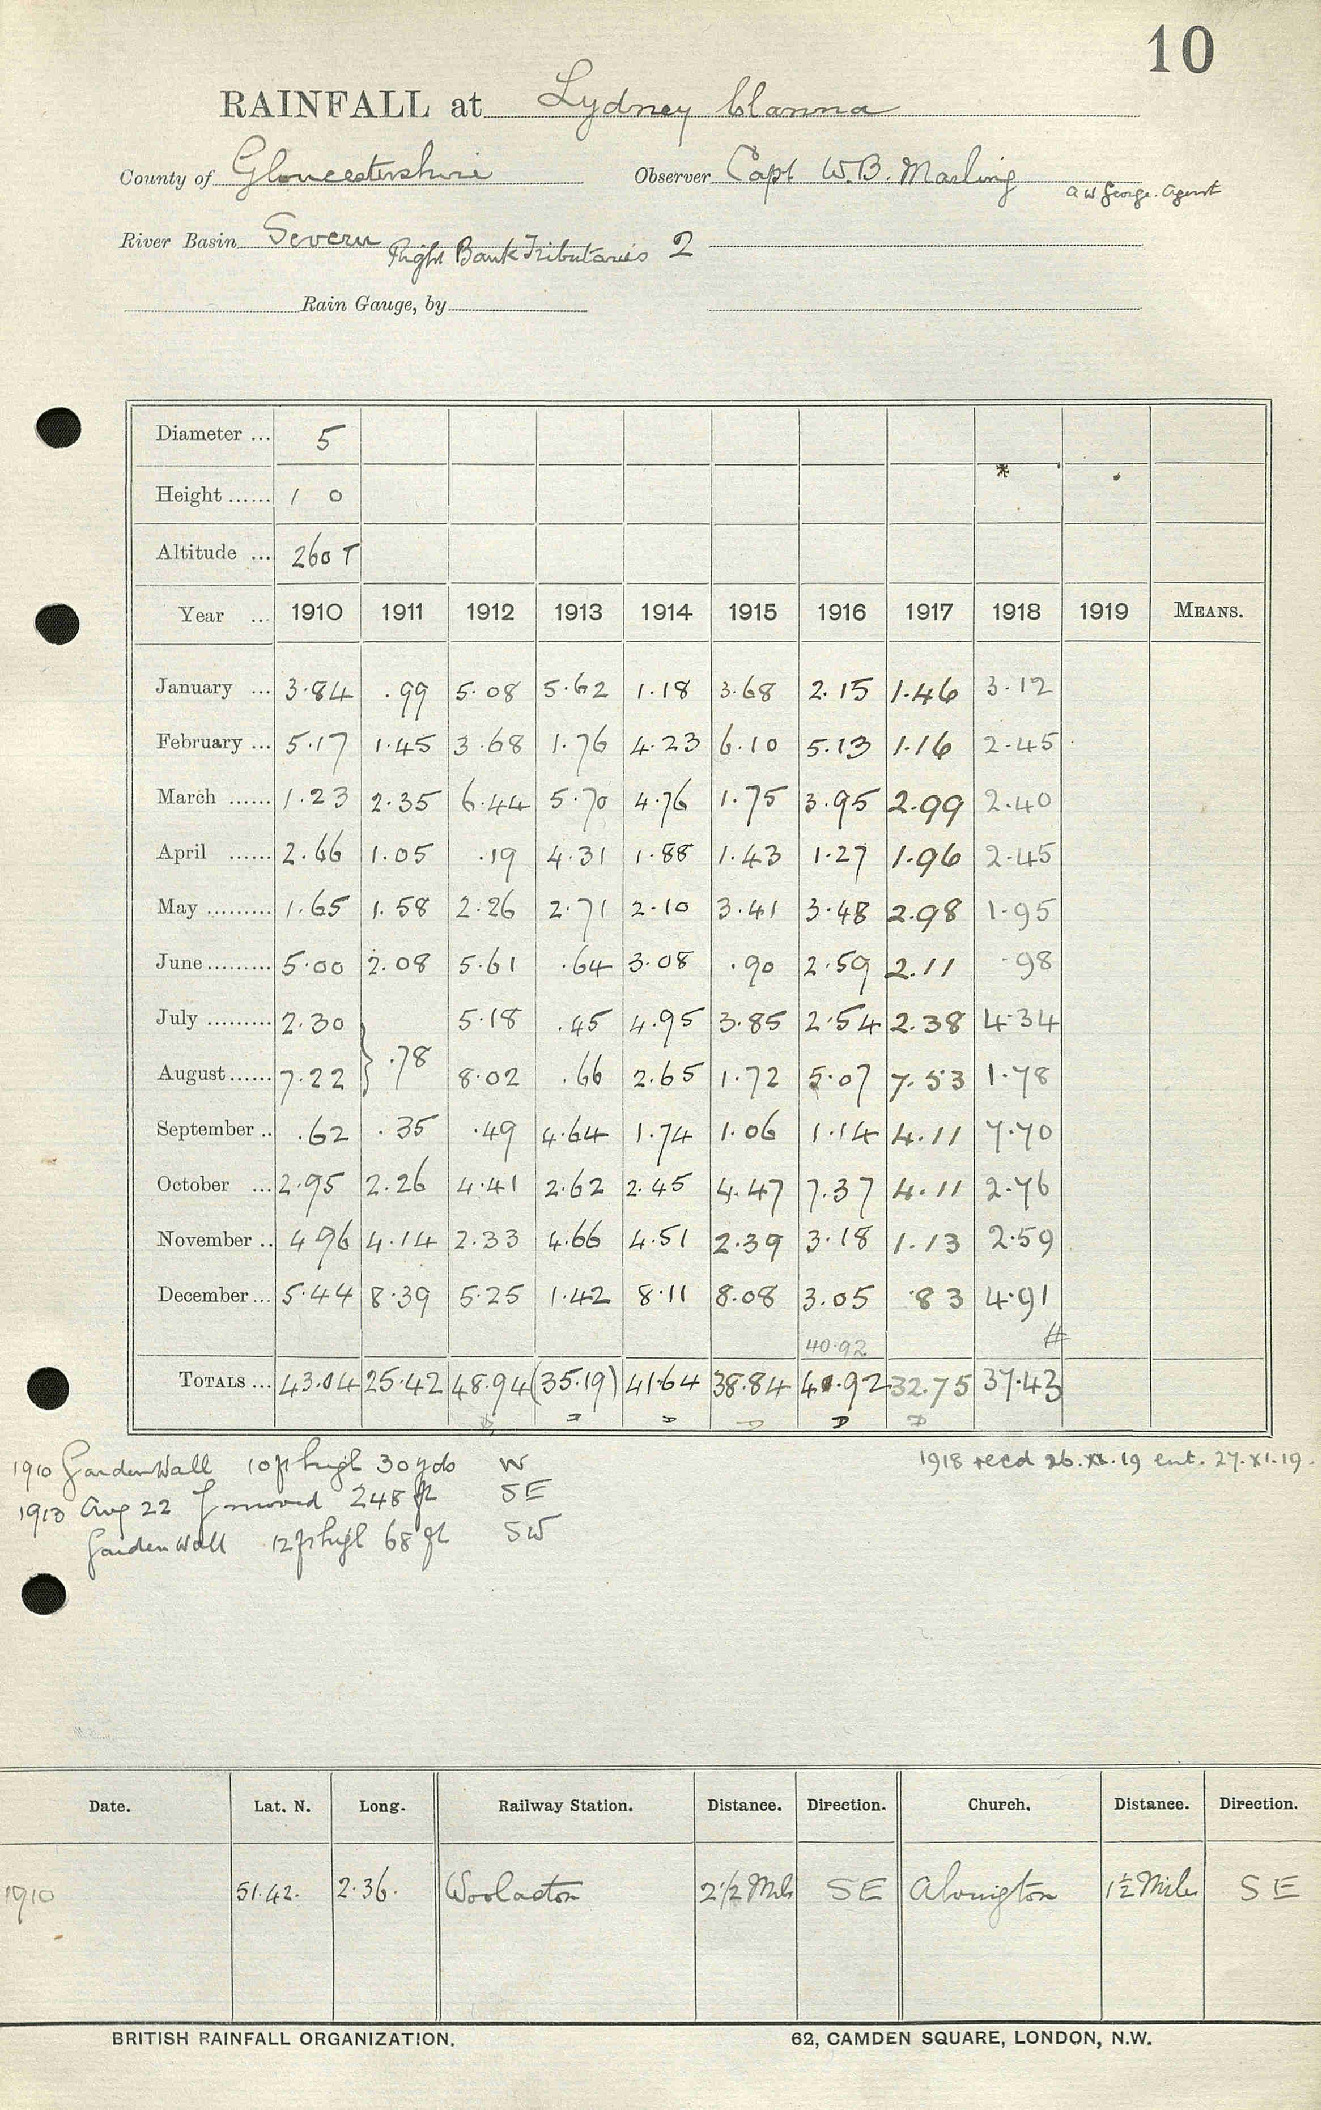 10
RAINFALL at Lydney Clanna
County of Gloucestershire Observer Capt W.B. Marling A W George. Agent
River Basin Severn Right Bank Tributaries 2
Rain Gauge, by
Diameter ... 5
Height ...... 1 0 *
Altitude ... 260 T
Year ... 1910 1911 1912 1913 1914 1915 1916 1917 1918 1919 MEANS.
January ... 3.84 .99 5.08 5.62 1.18 3.68 2.15 1.46 3.12
February ... 5.17 1.45 3.68 1.76 4.23 6.10 5.13 1.16 2.45
March ...... 1.23 2.35 6.44 5.70 4.76 1.75 3.95 2.99 2.40
April ...... 2.66 1.05 .19 4.31 1.88 1.43 1.27 1.96 2.45
May ......... 1.65 1.58 2.26 2.71 2.10 3.41 3.48 2.98 1.95
June ......... 5.00 2.08 5.61 .64 3.08 .90 2.59 2.11 .98
July ......... 2.30 5.18 .45 4.95 3.85 2.54 2.38 4.34
August ...... 7.22 } .78 8.02 .66 2.65 1.72 5.07 7.53 1.78
September .. .62 .35 .49 4.64 1.74 1.06 1.14 4.11 7.70
October ... 2.95 2.26 4.41 2.62 2.45 4.47 7.37 4.11 2.76
November .. 4 96 4.14 2.33 4.66 4.51 2.39 3.18 1.13 2.59
December ... 5.44 8.39 5.25 1.42 8.11 8.08 3.05 .83 4.91
40.92 #
TOTALS ... 43.04 25.42 48.94 (35.19) 41.64 38.84 40.92 32.75 37.43
1910 Garden Wall 10 ft high 30 yds W
1918 recd 26.XI.19 ent. 27.XI.19.
1913 Aug 22 G moved 248 ft SE
Garden Wall 12 ft high 68 ft SW
Date. Lat. N. Long. Railway Station. Distance. Direction. Church. Distance. Direction.
1910 51.42. 2.36. Woolaston 2 1/2 Mls SE Alvington 1 1/2 Miles SE
BRITISH RAINFALL ORGANIZATION. 62, CAMDEN SQUARE, LONDON, N.W.